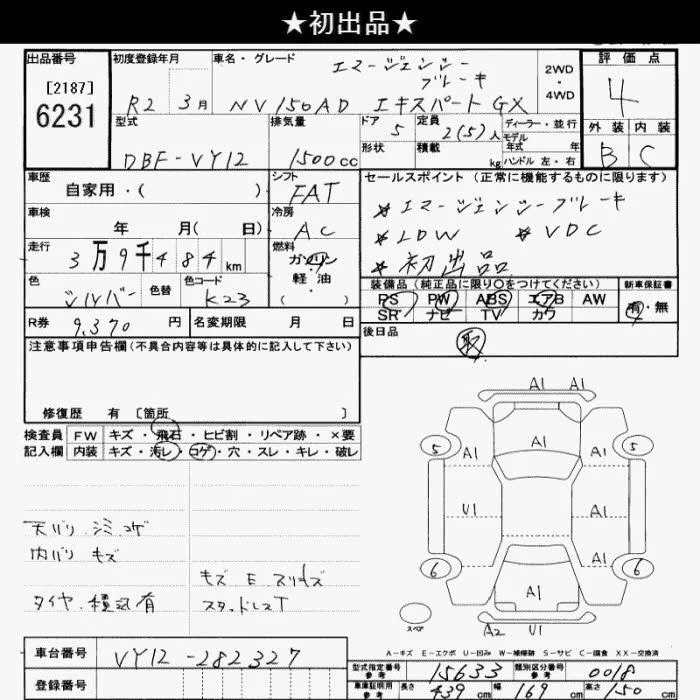 ★初出品★
出品番号
[2187]
6231
初度登録年月
R2 3月
車名・グレード
エマージェンシー
ブレーキ
NV150AD エキスパート GX
2WD
・
4WD
評価点
4
外装 内装
B C
型式
DBF-VY12
排気量
1500cc
ドア
5
定員
2(5)人
形状
積載
kg
ディーラー・並行
モデル
年式 年
ハンドル 左・右
車歴
自家用・( )
シフト
FAT
車検
年 月( 日)
冷房
AC
走行
3万9千484km
燃料
ガソリン
軽油
色
シルバー
色替
色コード
K23
R券
9,370円
名変期限 月 日
セールスポイント(正常に機能するものに限ります)
★エマージェンシーブレーキ
★LDW ★VDC
★初出品
装備品(純正品に限り〇をつけてください)
PS PW ABS エアB AW
SR ナビ TV カワ
新車保証書
有・無
後日品
取
注意事項申告欄(不具合内容等は具体的に記入して下さい)
修復歴 有 [箇所 ]
検査員
記入欄
FW キズ・飛石・ヒビ割・リペア跡・×要
内装 キズ・汚レ・コゲ・穴・スレ・キレ・破レ
天バリ シミ コゲ
内バリ キズ
キズ E スリキズ
タイヤ 積込有
スタッドレスT
A1 A1
5 A1 A1 5
U1 A1
A1
6 A1 6
スペア
A2 U1
A-キズ E-エクボ U-凹み W-補修跡 S-サビ C-腐食 XX-交換済
車台番号
VY12-282327
登録番号
型式指定番号
参考
15633
類別区分番号
参考
0018
車庫証明用
参考
長さ 439cm 幅 169cm 高さ 150cm